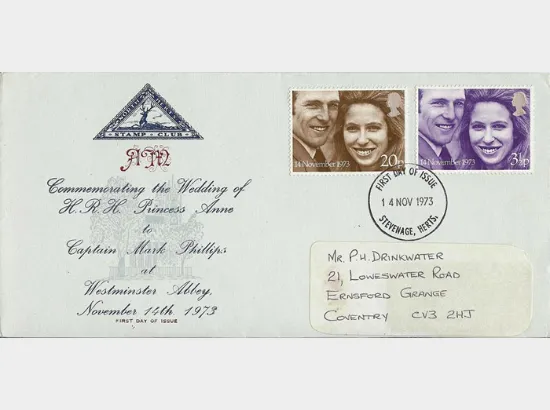 STAMP · CLUB
AM
Commemorating the Wedding of
H.R.H. Princess Anne
to
Captain Mark Phillips
at
Westminster Abbey,
November 14th 1973
FIRST DAY OF ISSUE
14 November 1973 20p
14 November 1973 3½p
FIRST DAY OF ISSUE
14 NOV 1973
STEVENAGE, HERTS.
MR. P.H. DRINKWATER
21, LOWESWATER ROAD
ERNSFORD GRANGE
COVENTRY CV3 2HJ